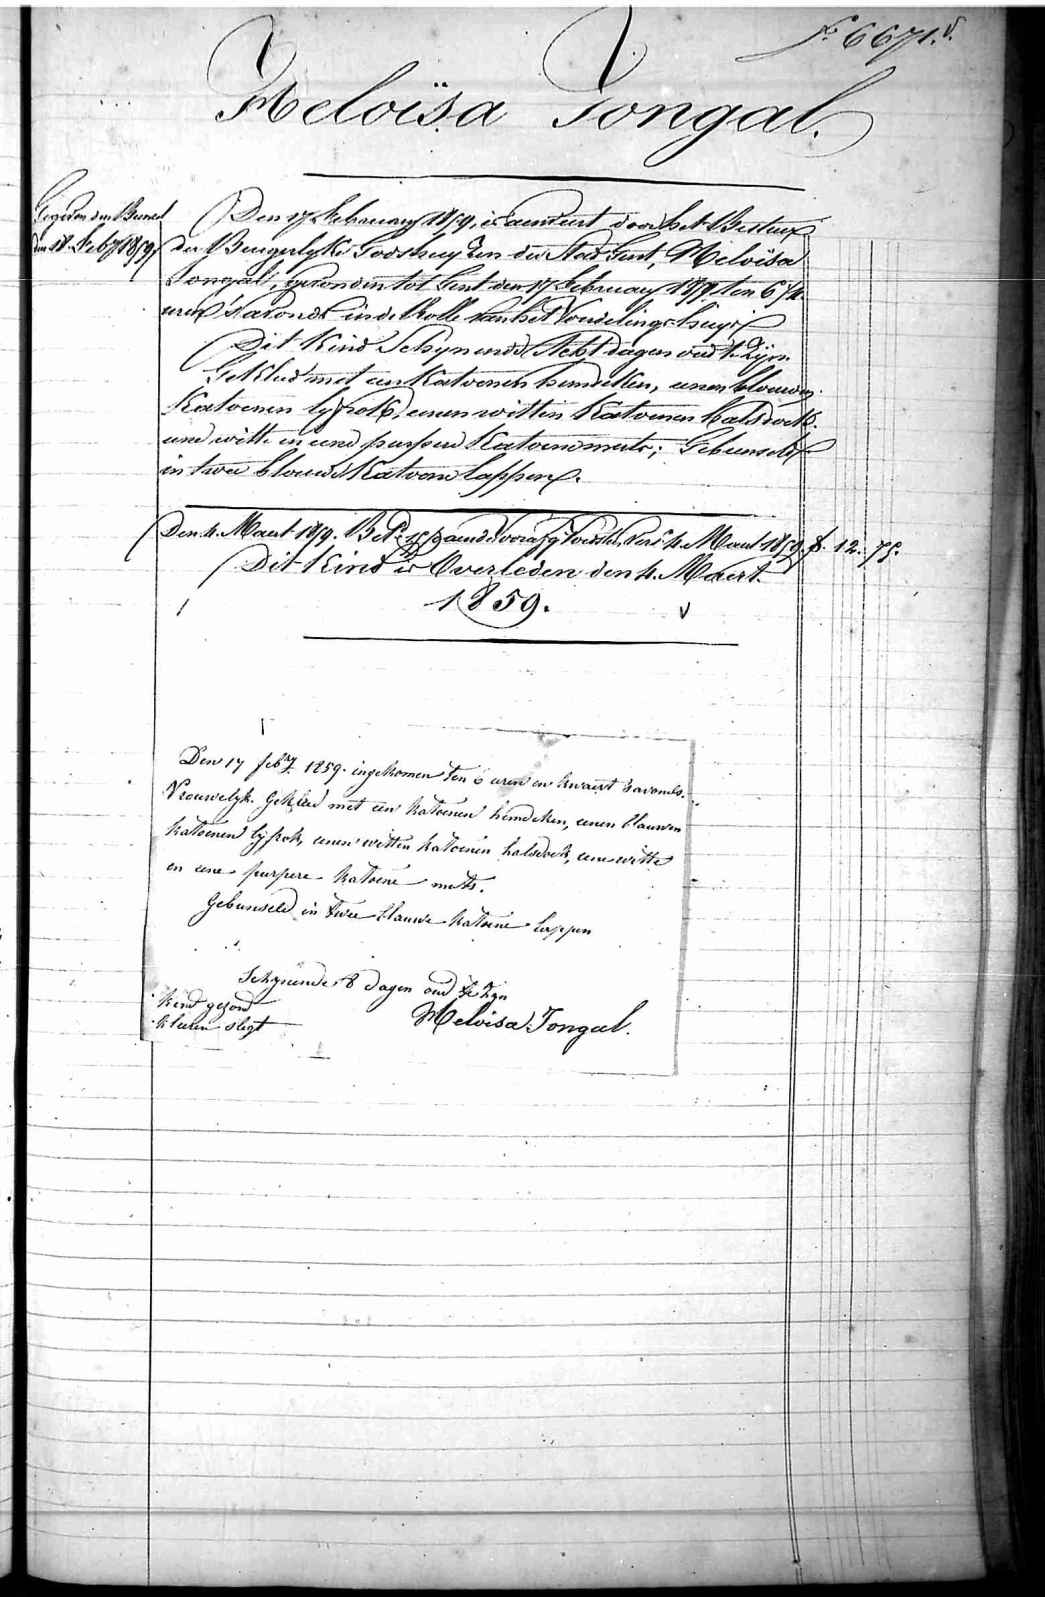 fo 6671. v.
Heloïsa Tongal.
Gegeven den Buveet
den 18 Feby 1859
Den 17 February 1859, is aenveert door het Bestuer
der Burgerlyke Godshuyzen der Stad Gent, Heloïsa
Tongal, gevonden tot Gent den 17 February 1859 ten 6 1/4
uren s'avonds in de Rolle van het Vondelingshuys
Dit Kind Schynende Acht dagen oud te Zyn.
Gekleed met een Katoenen hemdeken, eenen blauwen
Katoenen lyfrok, eenen witten Katoenen halsdoek,
eene witte en eene purpere Katoene muts; Gebunseld
in twee blauwe Katoene lappen.
Den 4 Maert 1859. Bet. aende voorafg. Voedst. Vers. 4 Maert 1859 f. 12. 75.
Dit Kind is Overleden den 4 Maert.
1859.
Den 17 feby 1859 ingekomen ten 6 uren en kwaert s'avonds.
Vrouwelyk. Gekleed met een katoenen hemdeken, eenen blauwen
katoenen lyfrok, eenen witten katoenen halsdoek, eene witte
en eene purpere katoene muts.
Gebunseld in twee blauwe katoene lappen
Schynende 8 dagen oud te zyn
kind gezond
kleeren slegt
Heloisa Tongal.